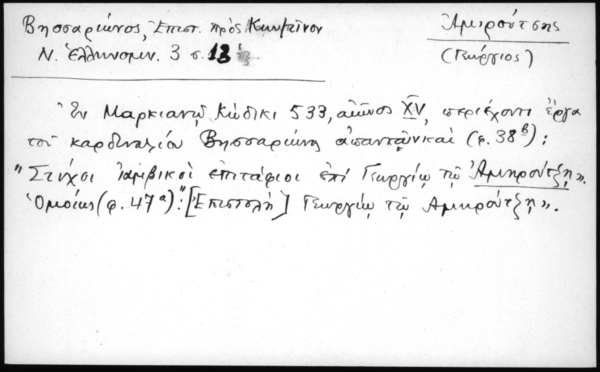 Βησσαρίωνος, Ἐπιστ. πρὸς Κωνσ/τῖνον
Ν. Ἑλληνομν. 3 σ. 13
Ἀμιρούτσης
(Γεώργιος)
Ἐν Μαρκιανῷ Κώδικι 533, αἰῶνος XV, περιέχοντι ἔργα
τοῦ καρδιναλίου Βησσαρίωνος ἀπαντῶσι καὶ (φ. 38β):
"Στίχοι ἰαμβικοὶ ἐπιτάφιοι ἐπὶ Γεωργίῳ τῷ Ἀμηρούτζῃ».
Ὁμοίως (φ. 47α): "[Ἐπιστολὴ] Γεωργίῳ τῷ Ἀμηρούτζῃ».